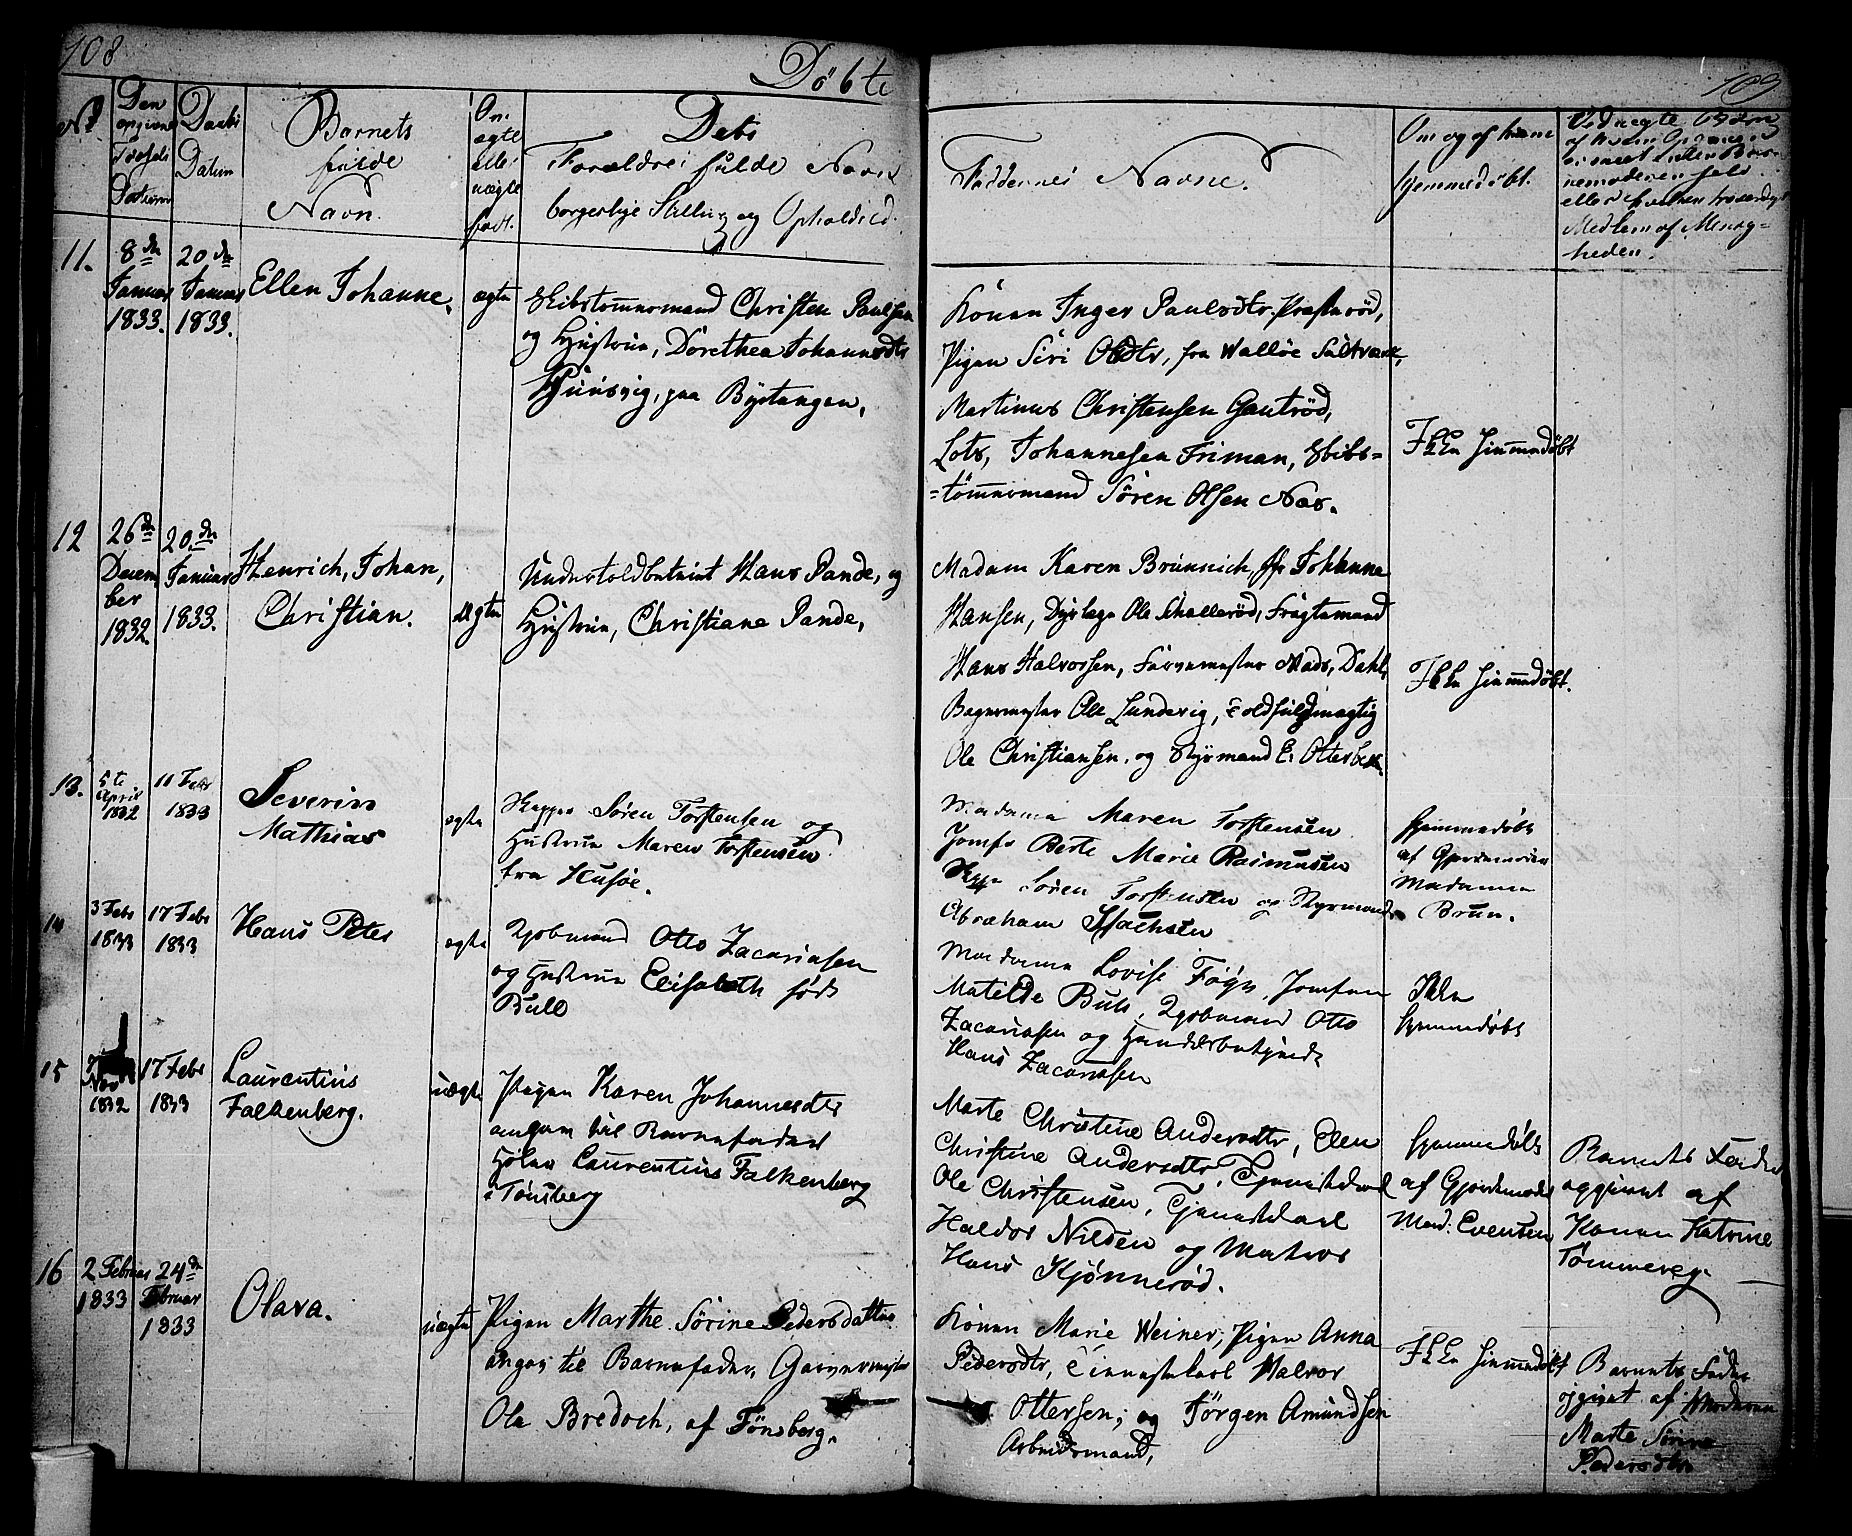 108
Döbte
109
No
Den opgivne Födsels Datum
Daabs Datum
Barnets fulde Navn.
Om ægte eller uægte födt.
Dets Forældres fulde Navn borgerlige Stilling og Opholdsted.
Faddernes Navne.
Om og af hvem hjemmedöbt.
Ved uægte Börn af hvem
eller
Medlem af Menig-
heden.
11.
8de Januar 1833.
20de Januar 1833.
Ellen Johanne,
ægte
Skibstömmermand Christen Paulsen
og Hustrue, Dorethea Johannesdtr
paa Bystangen,
Konen Inger Paulsdtr Præsteröd,
Pigen Siri Olsdtr, fra Walløe Saltværk,
Martinus Christensen Gauteröd,
Lots, Johannesen Friman, Skibs=
=tömmermand Sören Olsen Næs.
Ikke Hjemmedöbt
12
26de December 1832
20de Januar 1833.
Henrich, Johan,
Christian.
ægte
Undertoldbetient Hans Pande, og
Hustrue, Christiane Pande,
Madam Karen Brünnich, Johanne
Hansen, Ole Fragtemand
Hans Halvorsen, Farvemester Mads, Dahl,
Bagermester Ole Lundevig, Toldfuldmægtig
Ole Christiansen, og Styrmand E. Otterbech.
Ikke Hjemmedöbt.
13.
5te April 1832
11 Febr 1833
Severin
Mathias
ægte
Skipper Sören Torstensen og
Hustrue Maren Torstensen
fra Husöe.
Madame Maren Torstensen
Jomfr Berte Marie Rasmussen
Skipp Sören Torstensen og Styrmand
Abraham
Hjemmedöbt
af Gjordemoder
Madamme
Brun.
14
3 Febr 1833
17 Febr 1833
Hans Peter
ægte
Kjöbmand Otto Zacariasen
og Hustrue Elisabeth föds
Bull
Madamme Lovise Föyn, Jomfru
Matilde Bull, Kjöbmand Otto
Zacariasen og Handelsbetjendt
Hans Zacariasen
Ikke
Hjemmedöbt
15
Nov 1832
17 Febr 1833
Laurentius
Falkenberg.
uægte
Pigen Karen Johannesdtr
angav til Barnefader
Laurentius Falkenberg
i Tönsberg
Marte Christine Andersdtr, Elen
Christine Andersdtr, Tjenestekarl
Ole Christensen, Tjenestekarl
Haldor Nilsen og Matros
Hans Kjönneröd.
Hjemmedöbt
af Gjordemoder
Mad: Evensen
Barnets Fader
opgivet af
Konen Katrine
Tömmerey.
16
2 Februar 1833
24de Februar 1833
Olava.
uægte
Pigen Marthe Sörine Pedersdatter
angav til Barnefader, Garvermester
Ole Bredoch, af Tönsberg.
Konen Marie Weiner, Pigen Anna
Pedersdtr, Tienestekarl Halvor
Ottersen; og Jörgen Amundsen
Arbeidsmand,
Ikke Hjemmedöbt
Barnets Fader
opgivet af Moderen
Marte Sörine
Pedersdtr